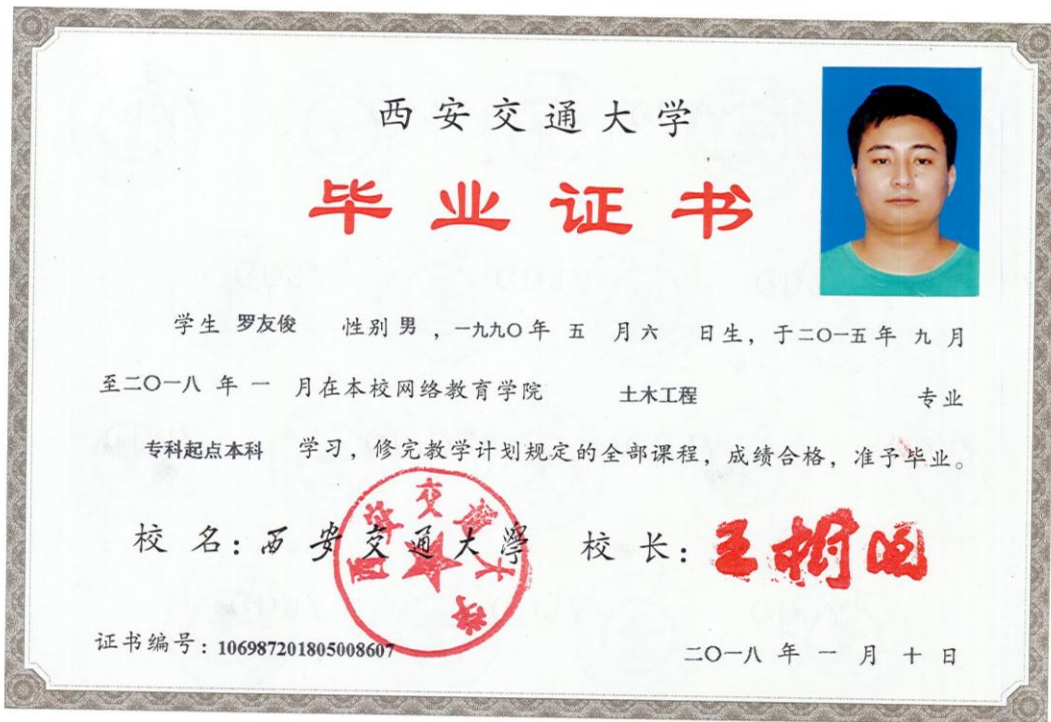 西安交通大学
毕业证书
学生 罗友俊 性别 男 ，一九九〇年 五 月六 日生，于二〇一五年 九 月
至二〇一八 年 一 月在本校网络教育学院 土木工程 专业
专科起点本科 学习，修完教学计划规定的全部课程，成绩合格，准予毕业。
校 名：西安交通大學 校 长：王树国
西安交通大学
证书编号：106987201805008607
二〇一八 年 一 月 十 日